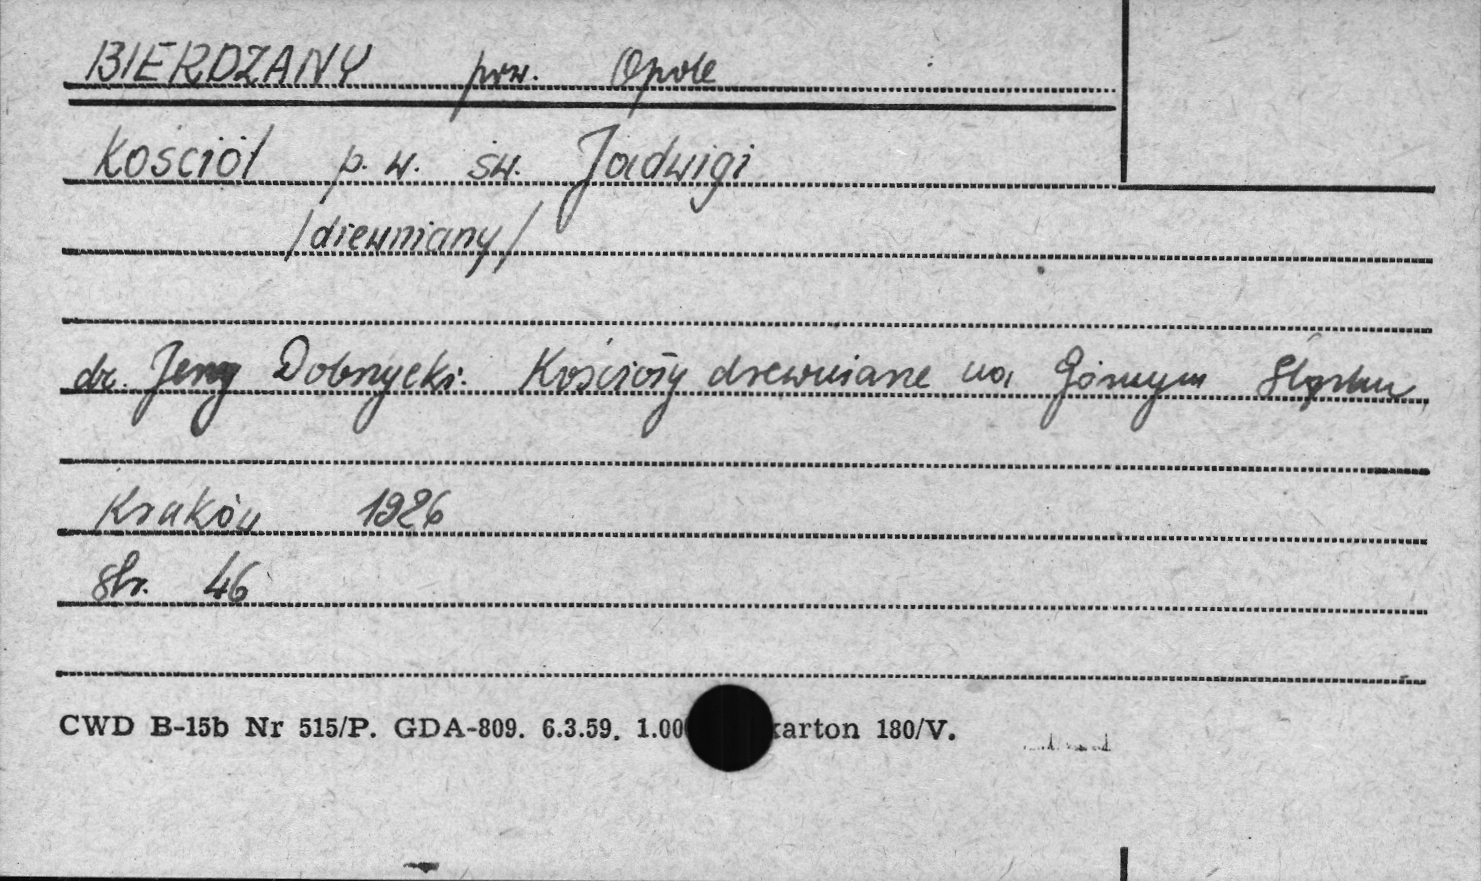 BIERDZANY pow. Opole
Kościół p.w. św. Jadwigi
/drewniany/
dr. Jerzy Dobrzycki: Kościoły drewniane na Górnym Śląsku
Kraków 1926
str. 46
CWD B-15b Nr 515/P. GDA-809. 6.3.59. 1.00 karton 180/V.